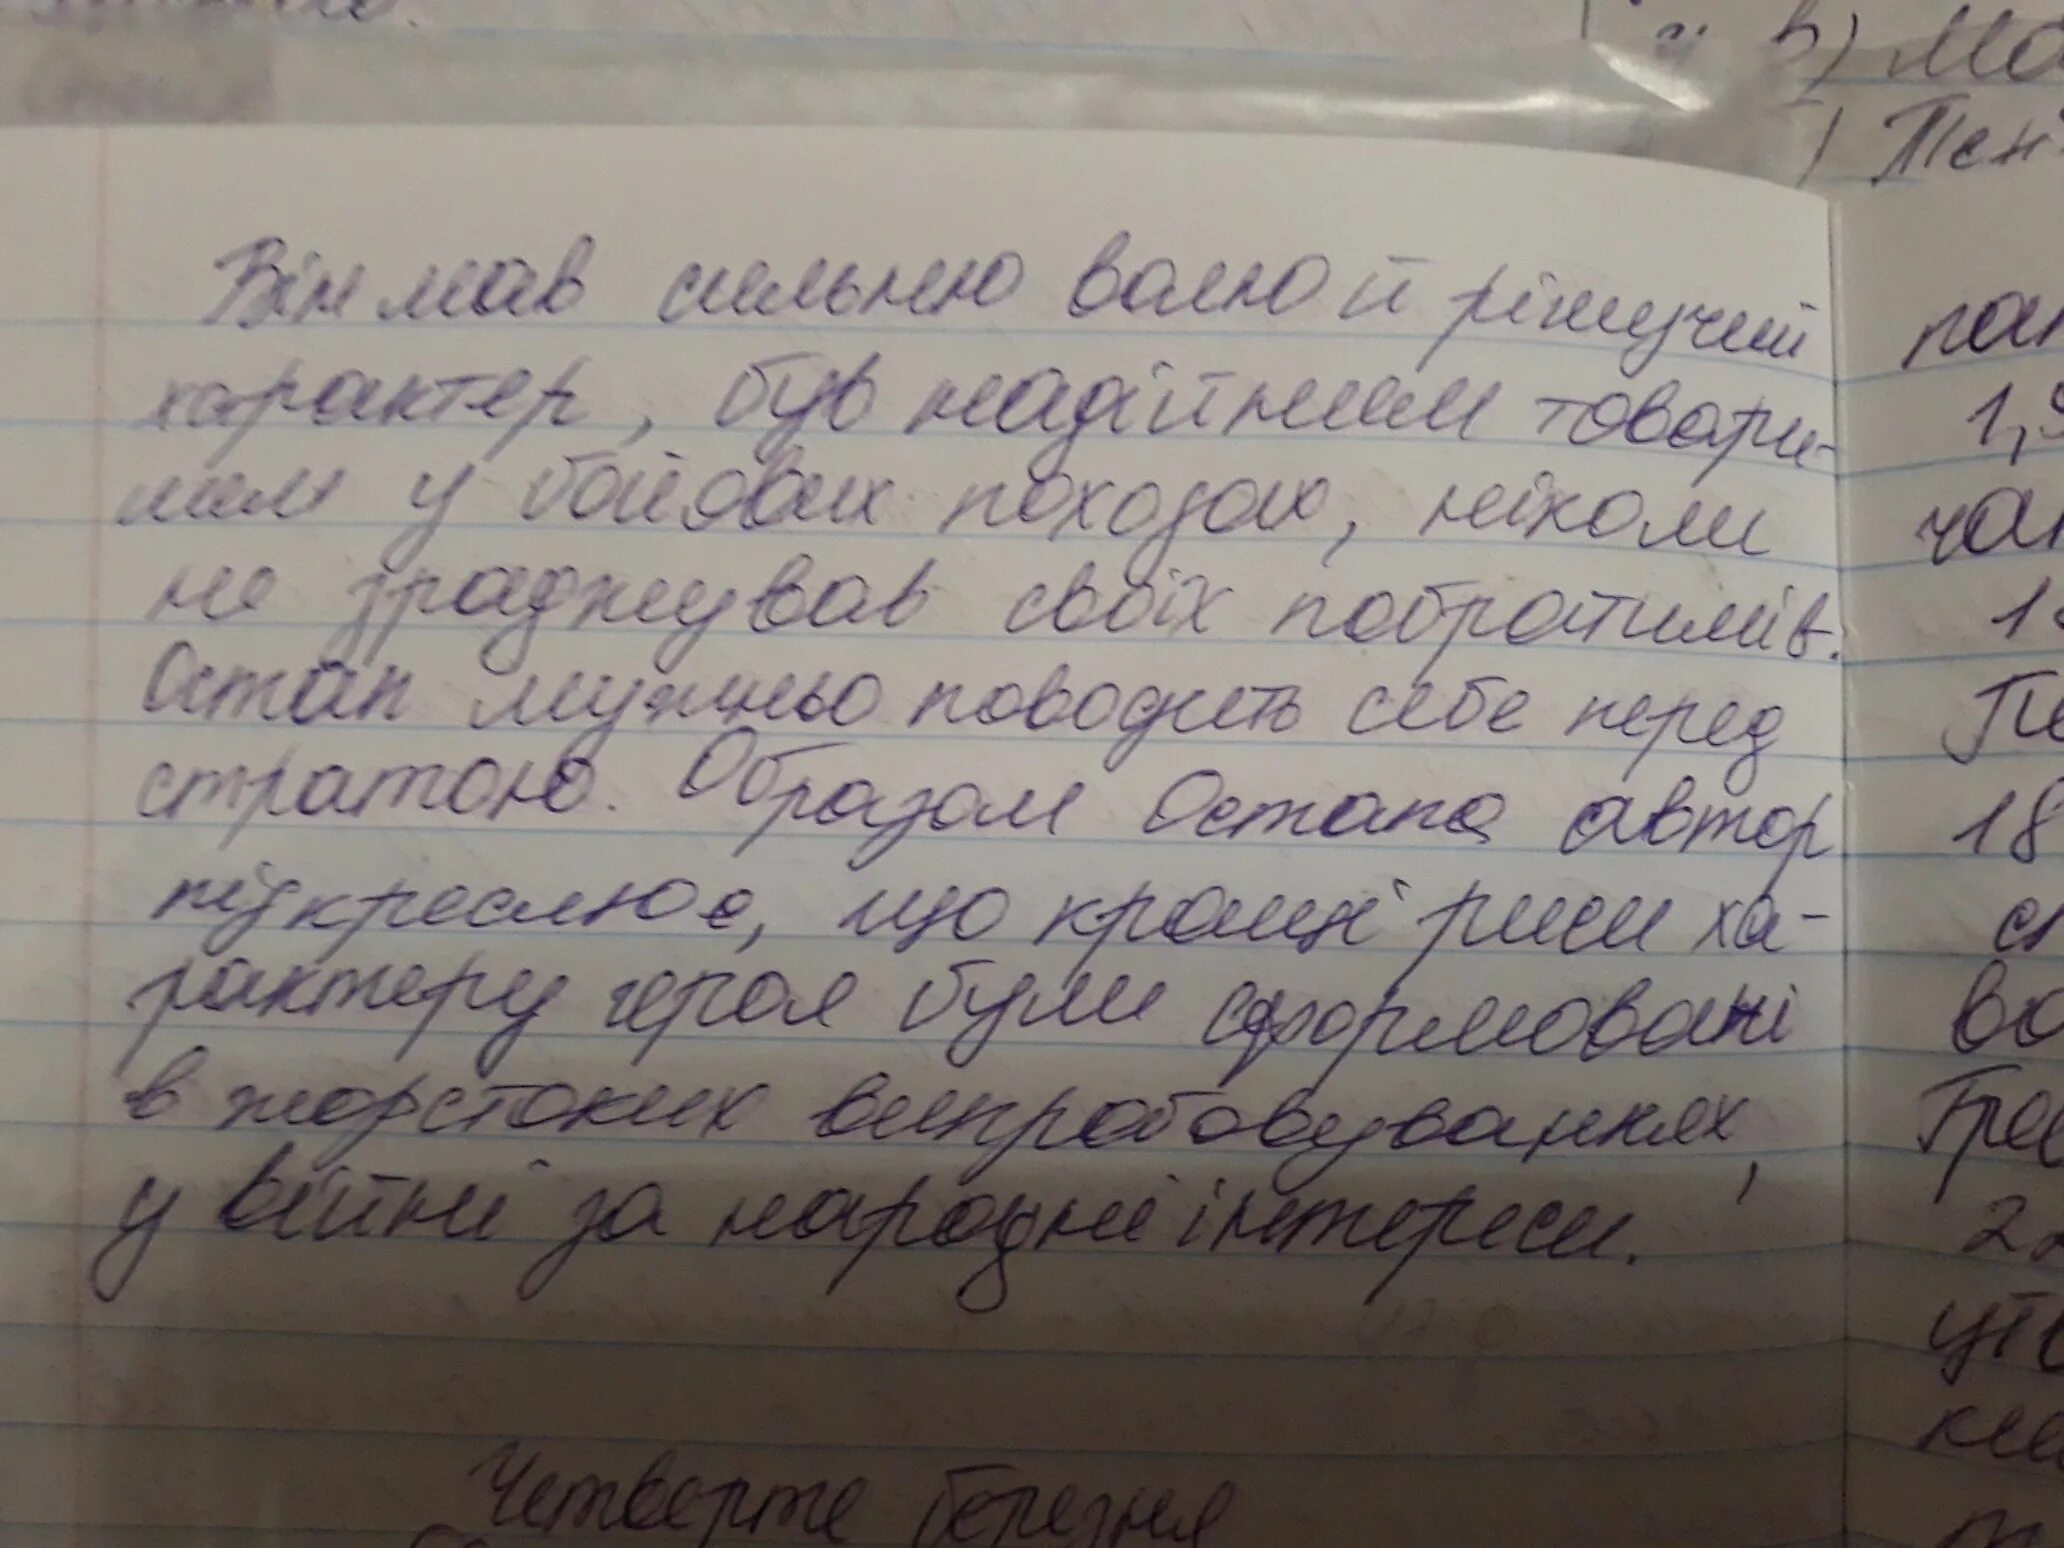 Він мав сильную волю й рішучий
характер, був надійним товари-
шем у бойових походах, ніколи
не зраджував своїх побратимів.
Остап мужньо поводить себе перед
стратою. Образом Остапа автор
підкреслює, що кращі риси ха-
рактеру героя були сформовані
в жорстоких випробовуваннях,
у війні за народні інтереси.
Четверте березня
в) Ма
пан
1,
чан
Пе
18
сп
во
Грев
22
утв